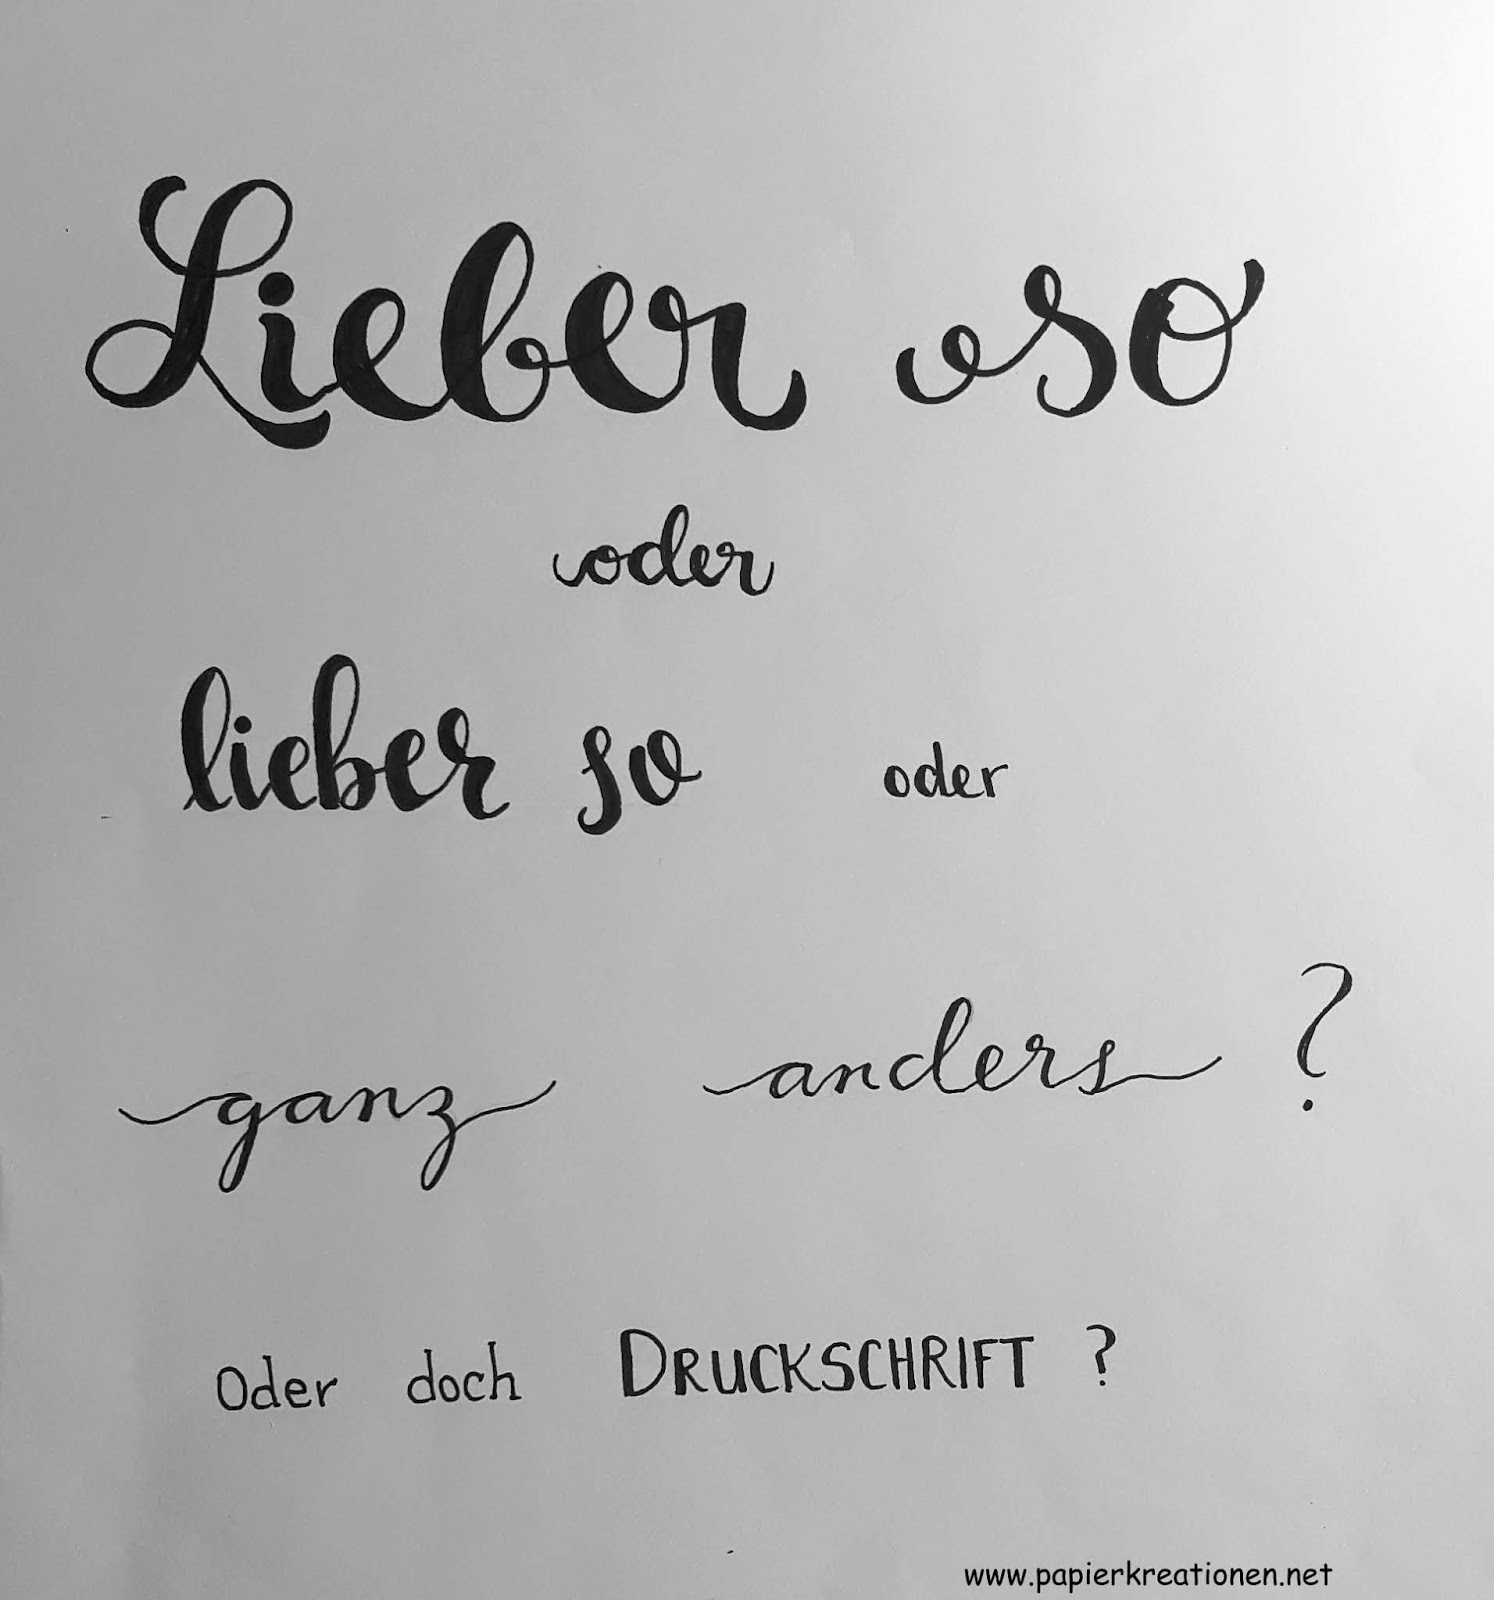 Lieber so
oder
lieber so oder
ganz anders ?
Oder doch DRUCKSCHRIFT ?
www.papierkreationen.net